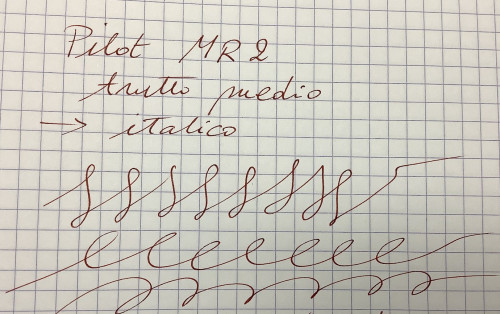 Pilot MR2
tratto medio
→ italico